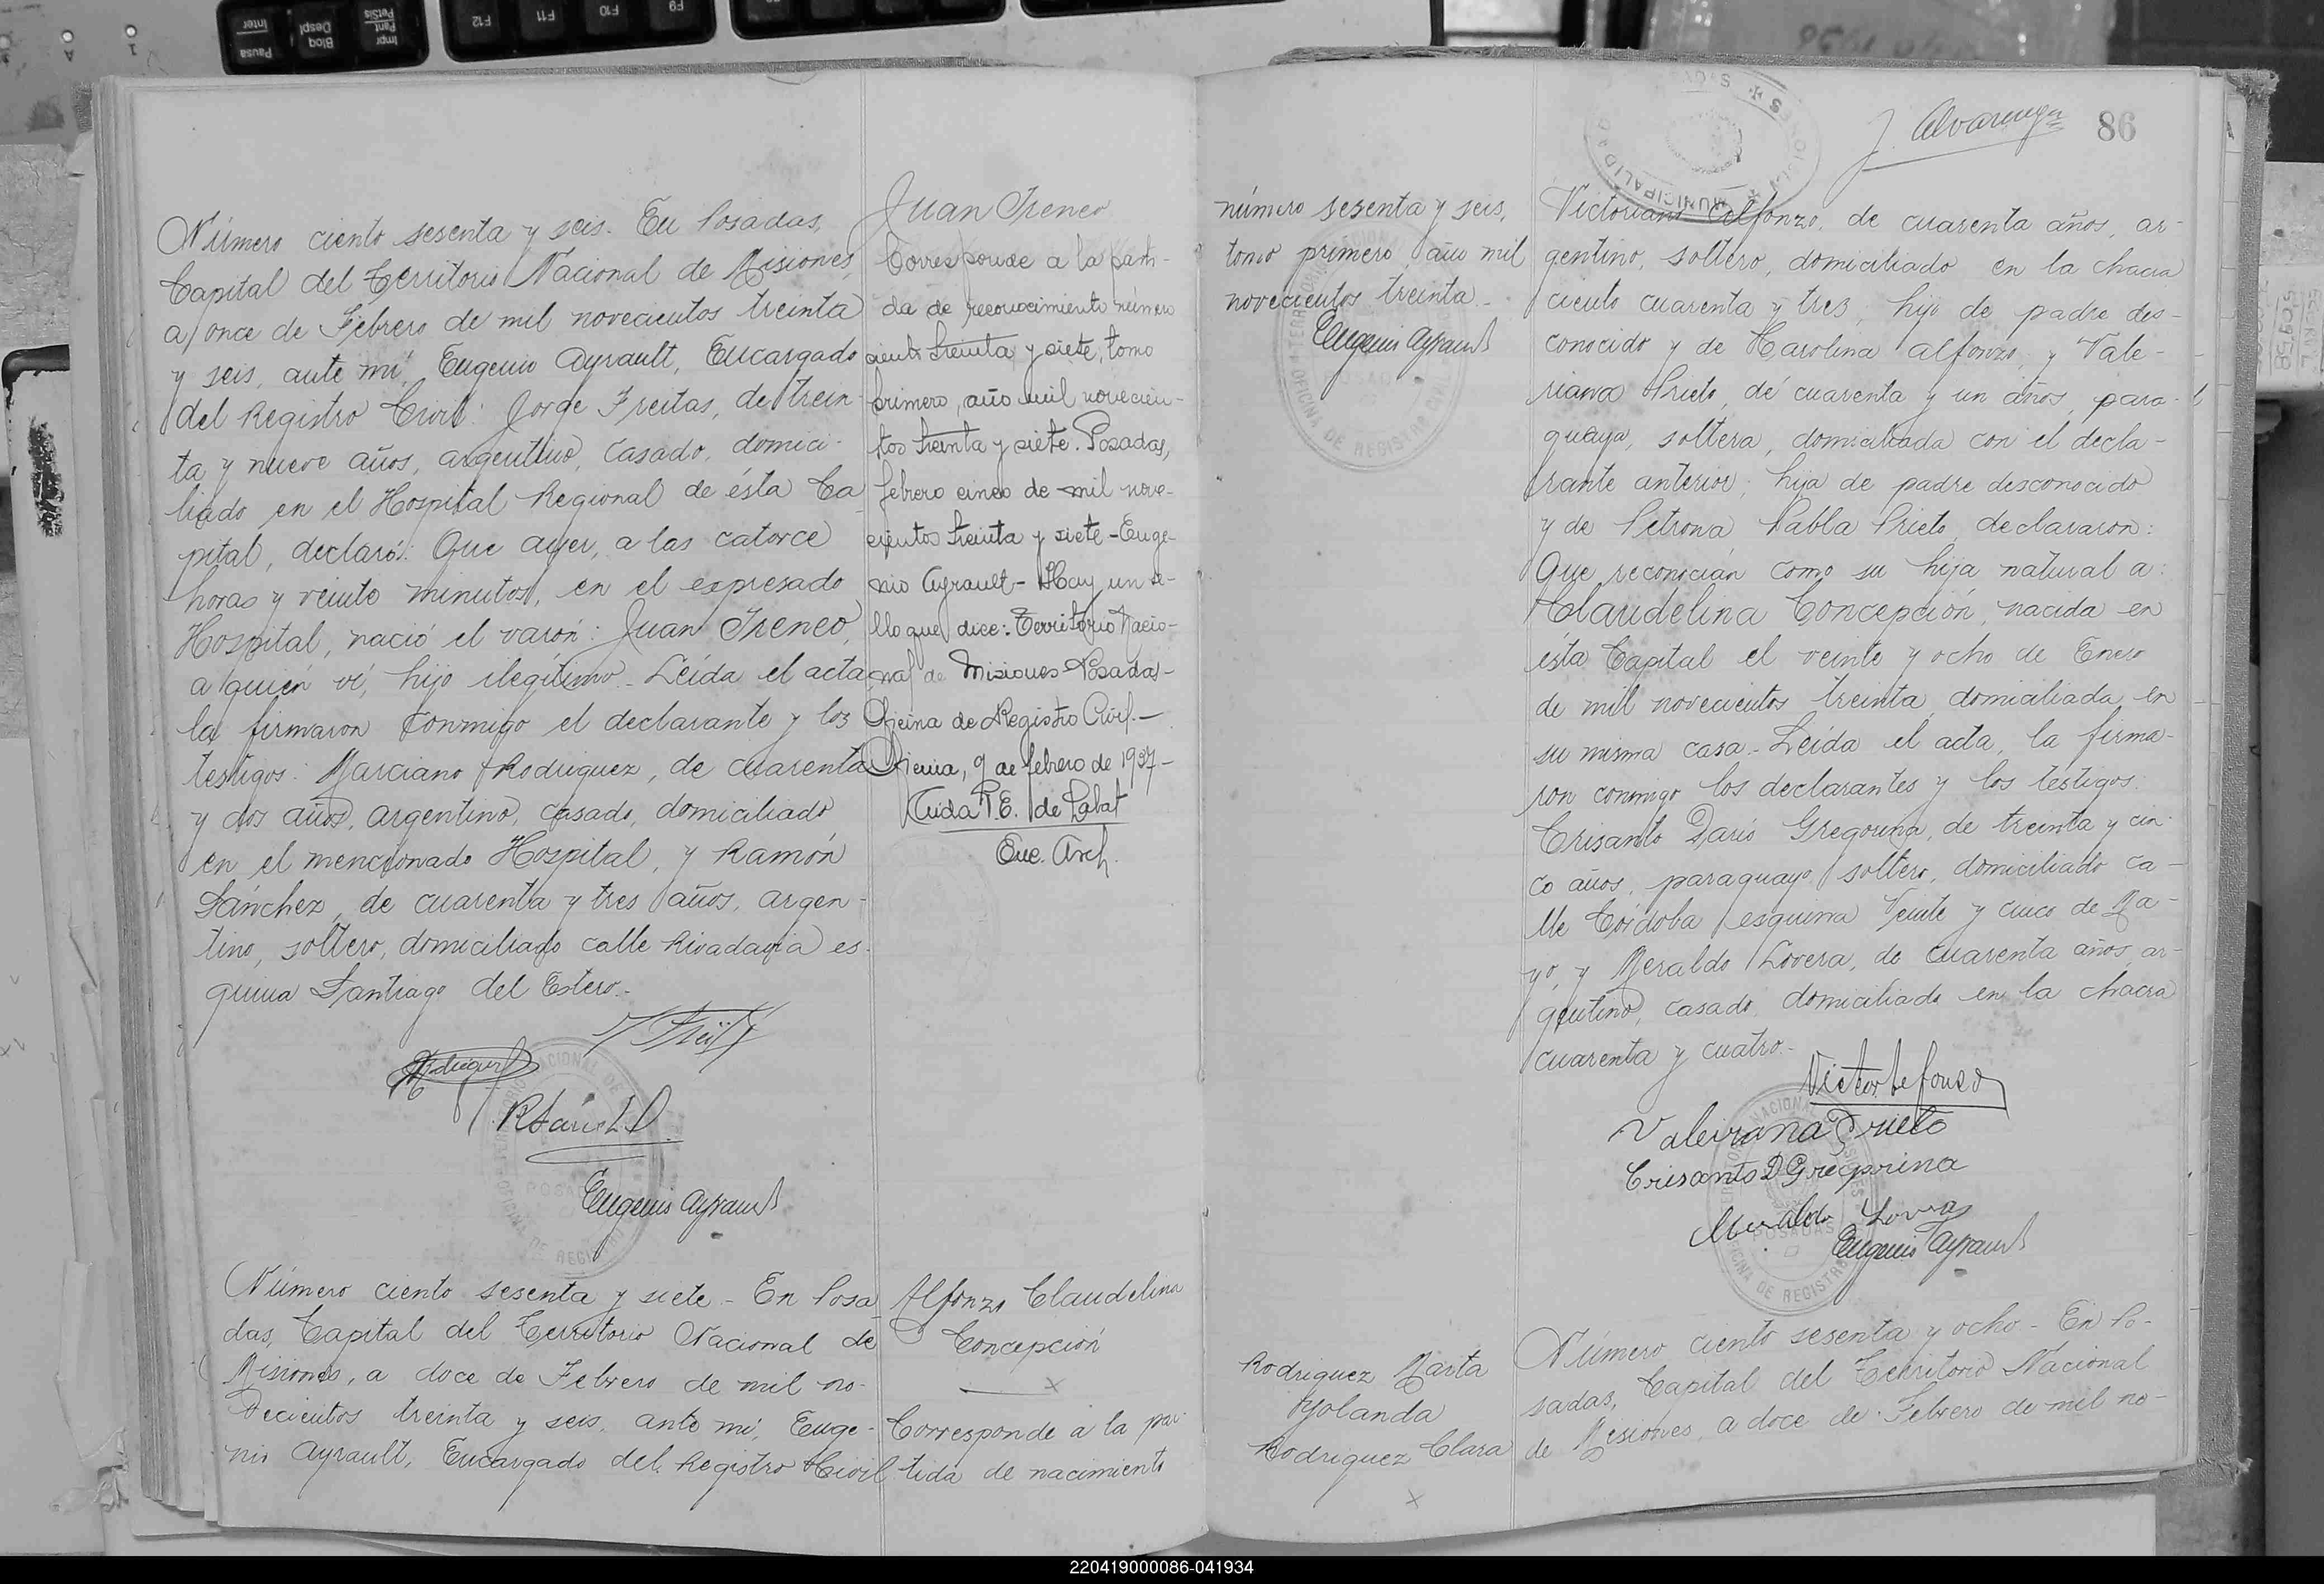 Número ciento sesenta y seis. En Posadas,
Capital del Territorio Nacional de Misiones,
a once de Febrero de mil novecientos treinta
y seis, ante mí, Eugenio Ayrault, Encargado
del Registro Civil: Jorge Freitas, de trein-
ta y nueve años, argentino, casado, domici-
liado en el Hospital Regional de ésta Ca-
pital, declaró: Que ayer, a las catorce
horas y veinte minutos, en el expresado
Hospital, nació el varón: Juan Ireneo,
a quién ví, hijo ilegítimo. Leída el acta
la firmaron conmigo el declarante y los
testigos: Marciano Rodriguez, de cuarenta
y dos años, argentino, casado, domiciliado
en el mencionado Hospital, y Ramón
Sánchez, de cuarenta y tres años, argen-
tino, soltero, domiciliado calle Rivadavia es-
quina Santiago del Estero.-
Eugenio Ayrault
Juan Ireneo
Corresponde a la parti-
da de reconocimiento número
ciento treinta y siete, tomo
primero, año mil novecien-
tos treinta y siete. Posadas,
febrero cinco de mil nove-
cientos treinta y siete - Euge-
nio Ayrault - Hay un se-
llo que dice: Territorio Nacio-
nal de Misiones - Posadas -
Oficina de Registro Civil.-
Oficina, 9 de febrero de 1937-
de Labat
Enc. Arch.
Número ciento sesenta y siete - En Posa
das, Capital del Territorio Nacional de
Misiones, a doce de Febrero de mil no-
vecientos treinta y seis, ante mí, Euge-
nio Ayrault, Encargado del Registro Civil
Alfonzo Claudelina
Concepción
Corresponde a la par
tida de nacimiento
número sesenta y seis,
tomo primero, año mil
novecientos treinta.-
Eugenio Ayrault
Rodriguez Marta
Yolanda
Rodriguez Clara
J. Alvarenga
86
Victoriano Alfonzo, de cuarenta años, ar-
gentino, soltero, domiciliado en la chacra
ciento cuarenta y tres, hijo de padre des-
conocido y de Carolina Alfonzo, y Vale-
riana Prieto, de cuarenta y un años, para-
guaya, soltera, domiciliada con el decla-
rante anterior, hija de padre desconocido
y de Petrona Pabla Prieto, declararon:
Que reconocían como su hija natural a:
Claudelina Concepción, nacida en
ésta Capital el veinte y ocho de Enero
de mil novecientos treinta, domiciliada en
su misma casa.- Leída el acta, la firma-
ron conmigo los declarantes y los testigos:
Crisanto Darío Gregorina, de treinta y cin-
co años, paraguayo, soltero, domiciliado ca-
lle Córdoba esquina Veinte y cinco de Ma-
yo, y Meraldo Lovera, de cuarenta años, ar-
gentino, casado, domiciliado en la chacra
cuarenta y cuatro.-
Valeriana Prieto
Crisanto D Gregorina
Meraldo Lovera
Eugenio Ayrault
Número ciento sesenta y ocho - En Po-
sadas, Capital del Territorio Nacional
de Misiones, a doce de Febrero de mil no-
220419000086-041934